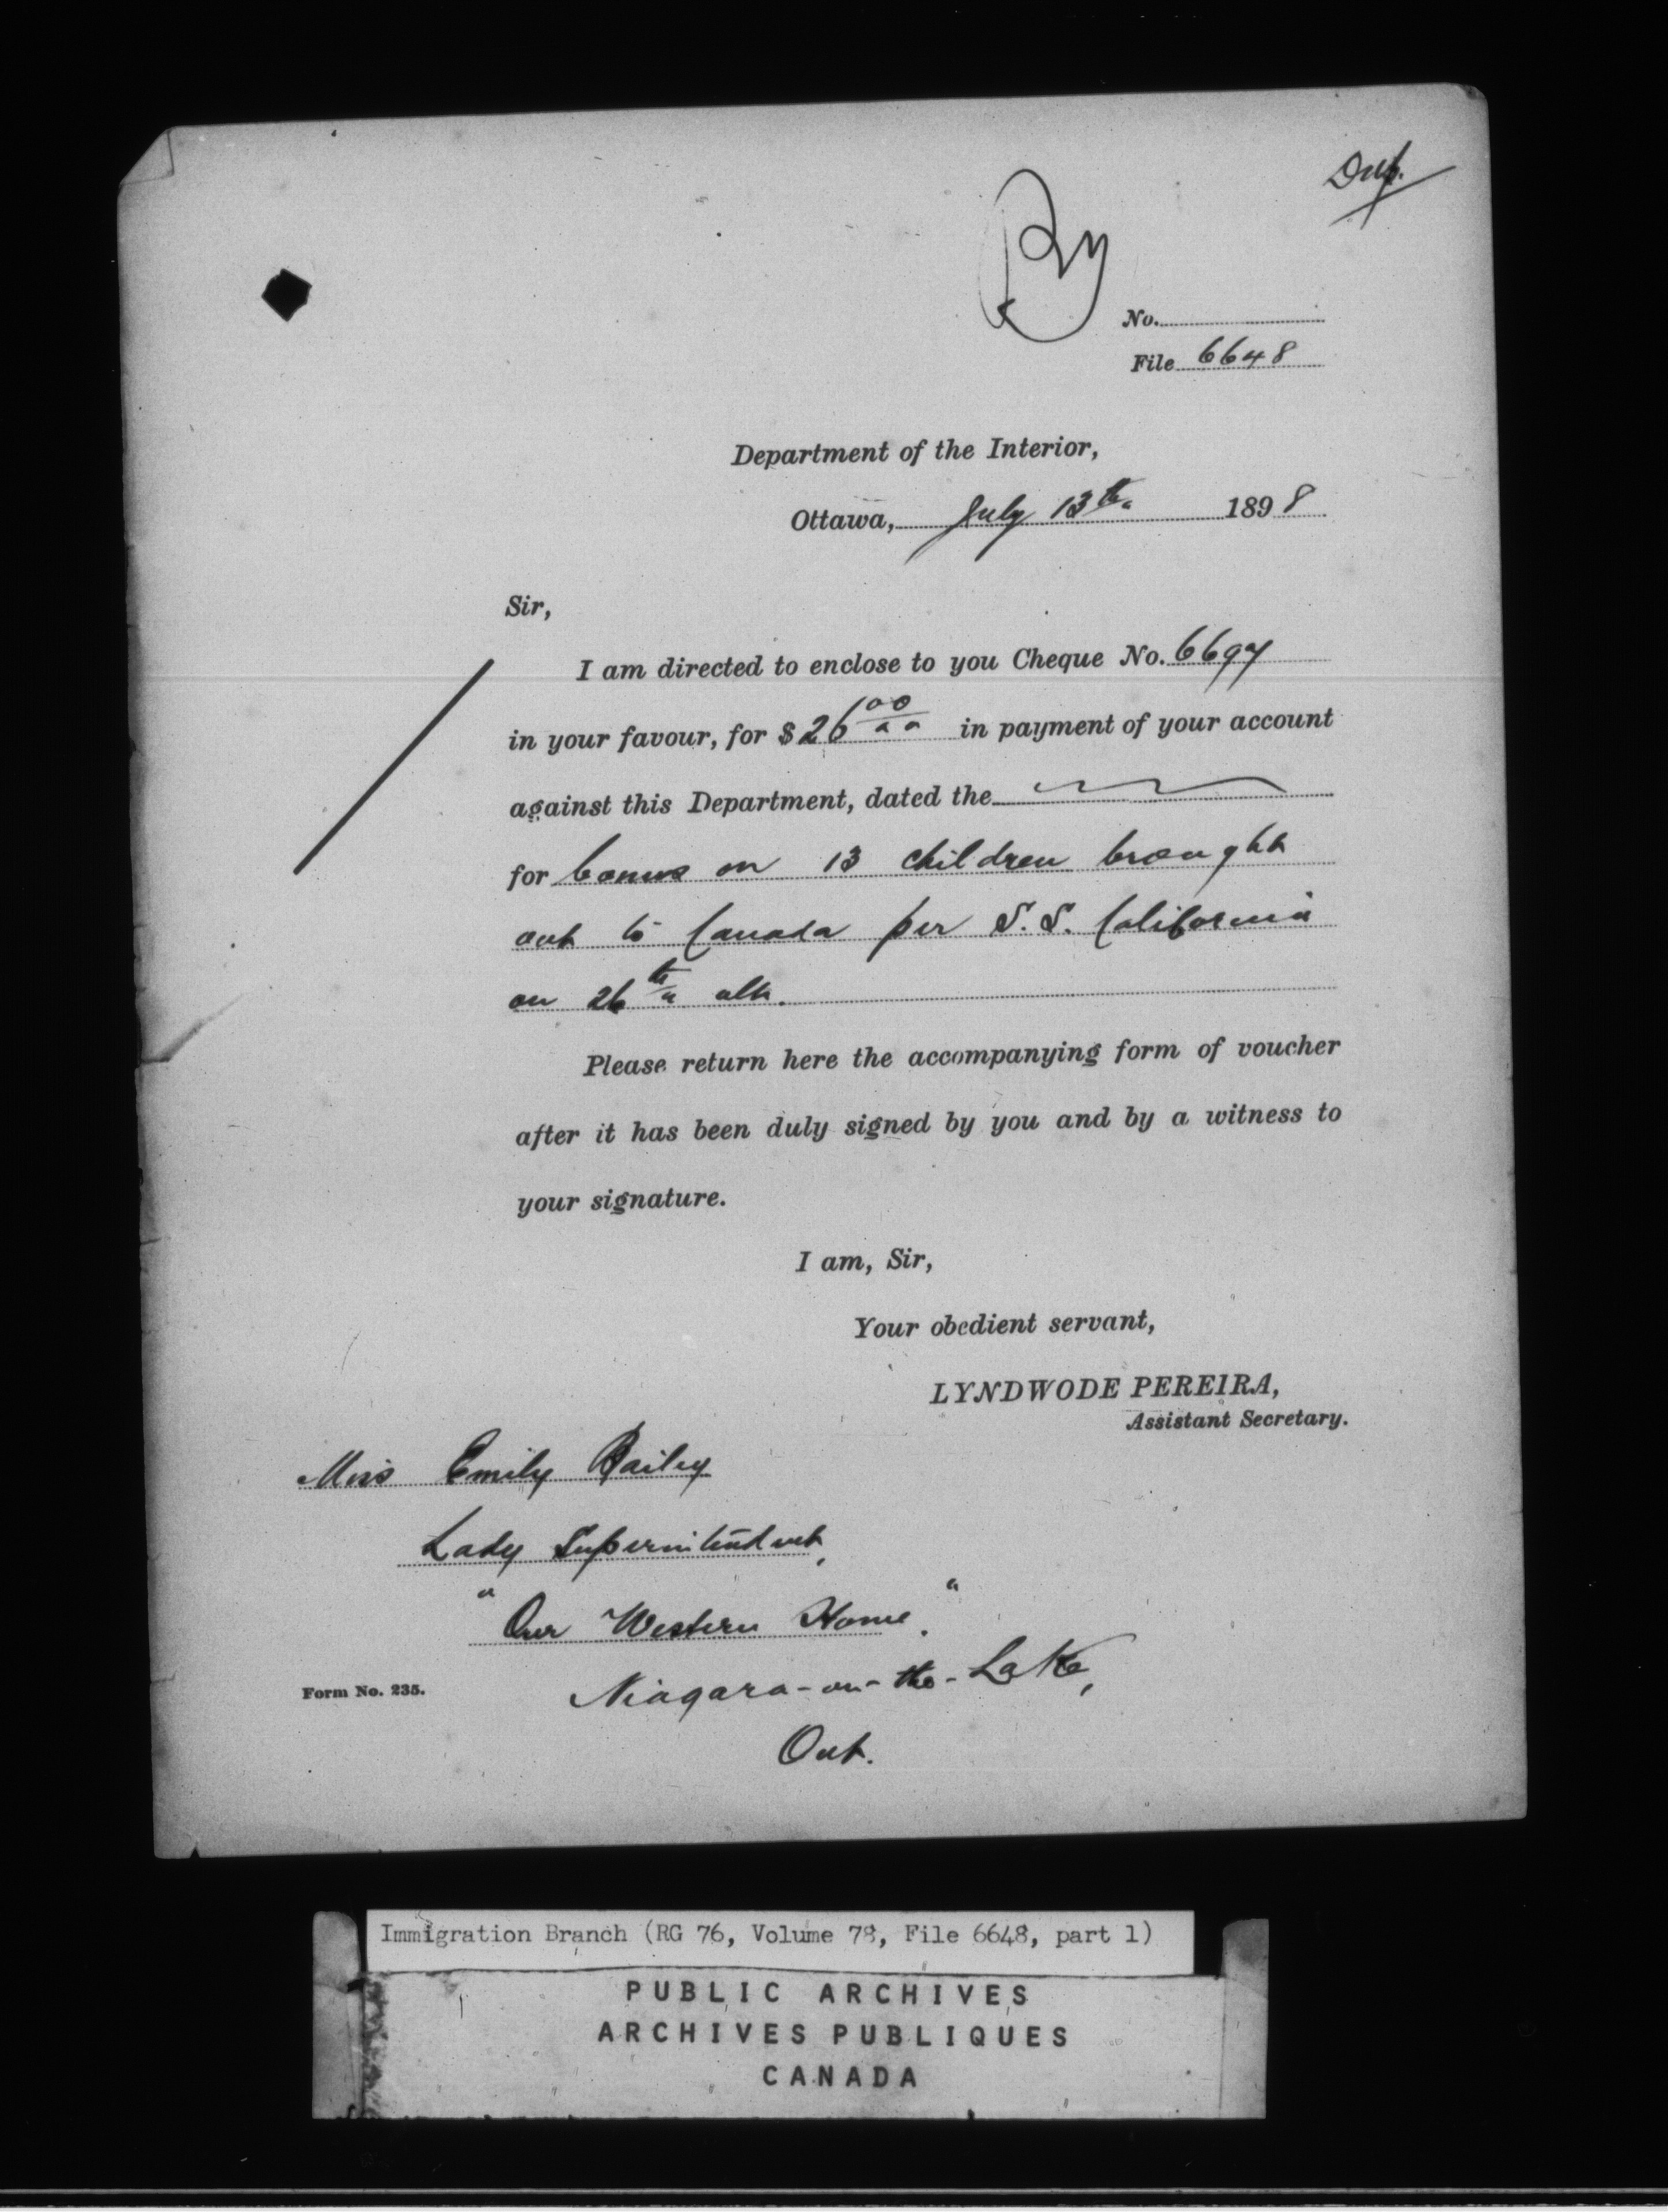 Dup.
No.
File 6648
Department of the Interior,
Ottawa, July 13th 1898
Sir,
I am directed to enclose to you Cheque No. 6697
in your favour, for $26 00/00 in payment of your account
against this Department, dated the
for bonus on 13 children brought
out to Canada per S.S. California
on 26th ult.
Please return here the accompanying form of voucher
after it has been duly signed by you and by a witness to
your signature.
I am, Sir,
Your obedient servant,
LYNDWODE PEREIRA,
Assistant Secretary.
Miss Emily Bailey
Lady Superintendent,
"Our Western Home."
Niagara-on-the-Lake,
Form No. 235.
Ont.
Immigration Branch (RG 76, Volume 78, File 6648, part 1)
PUBLIC ARCHIVES
ARCHIVES PUBLIQUES
CANADA